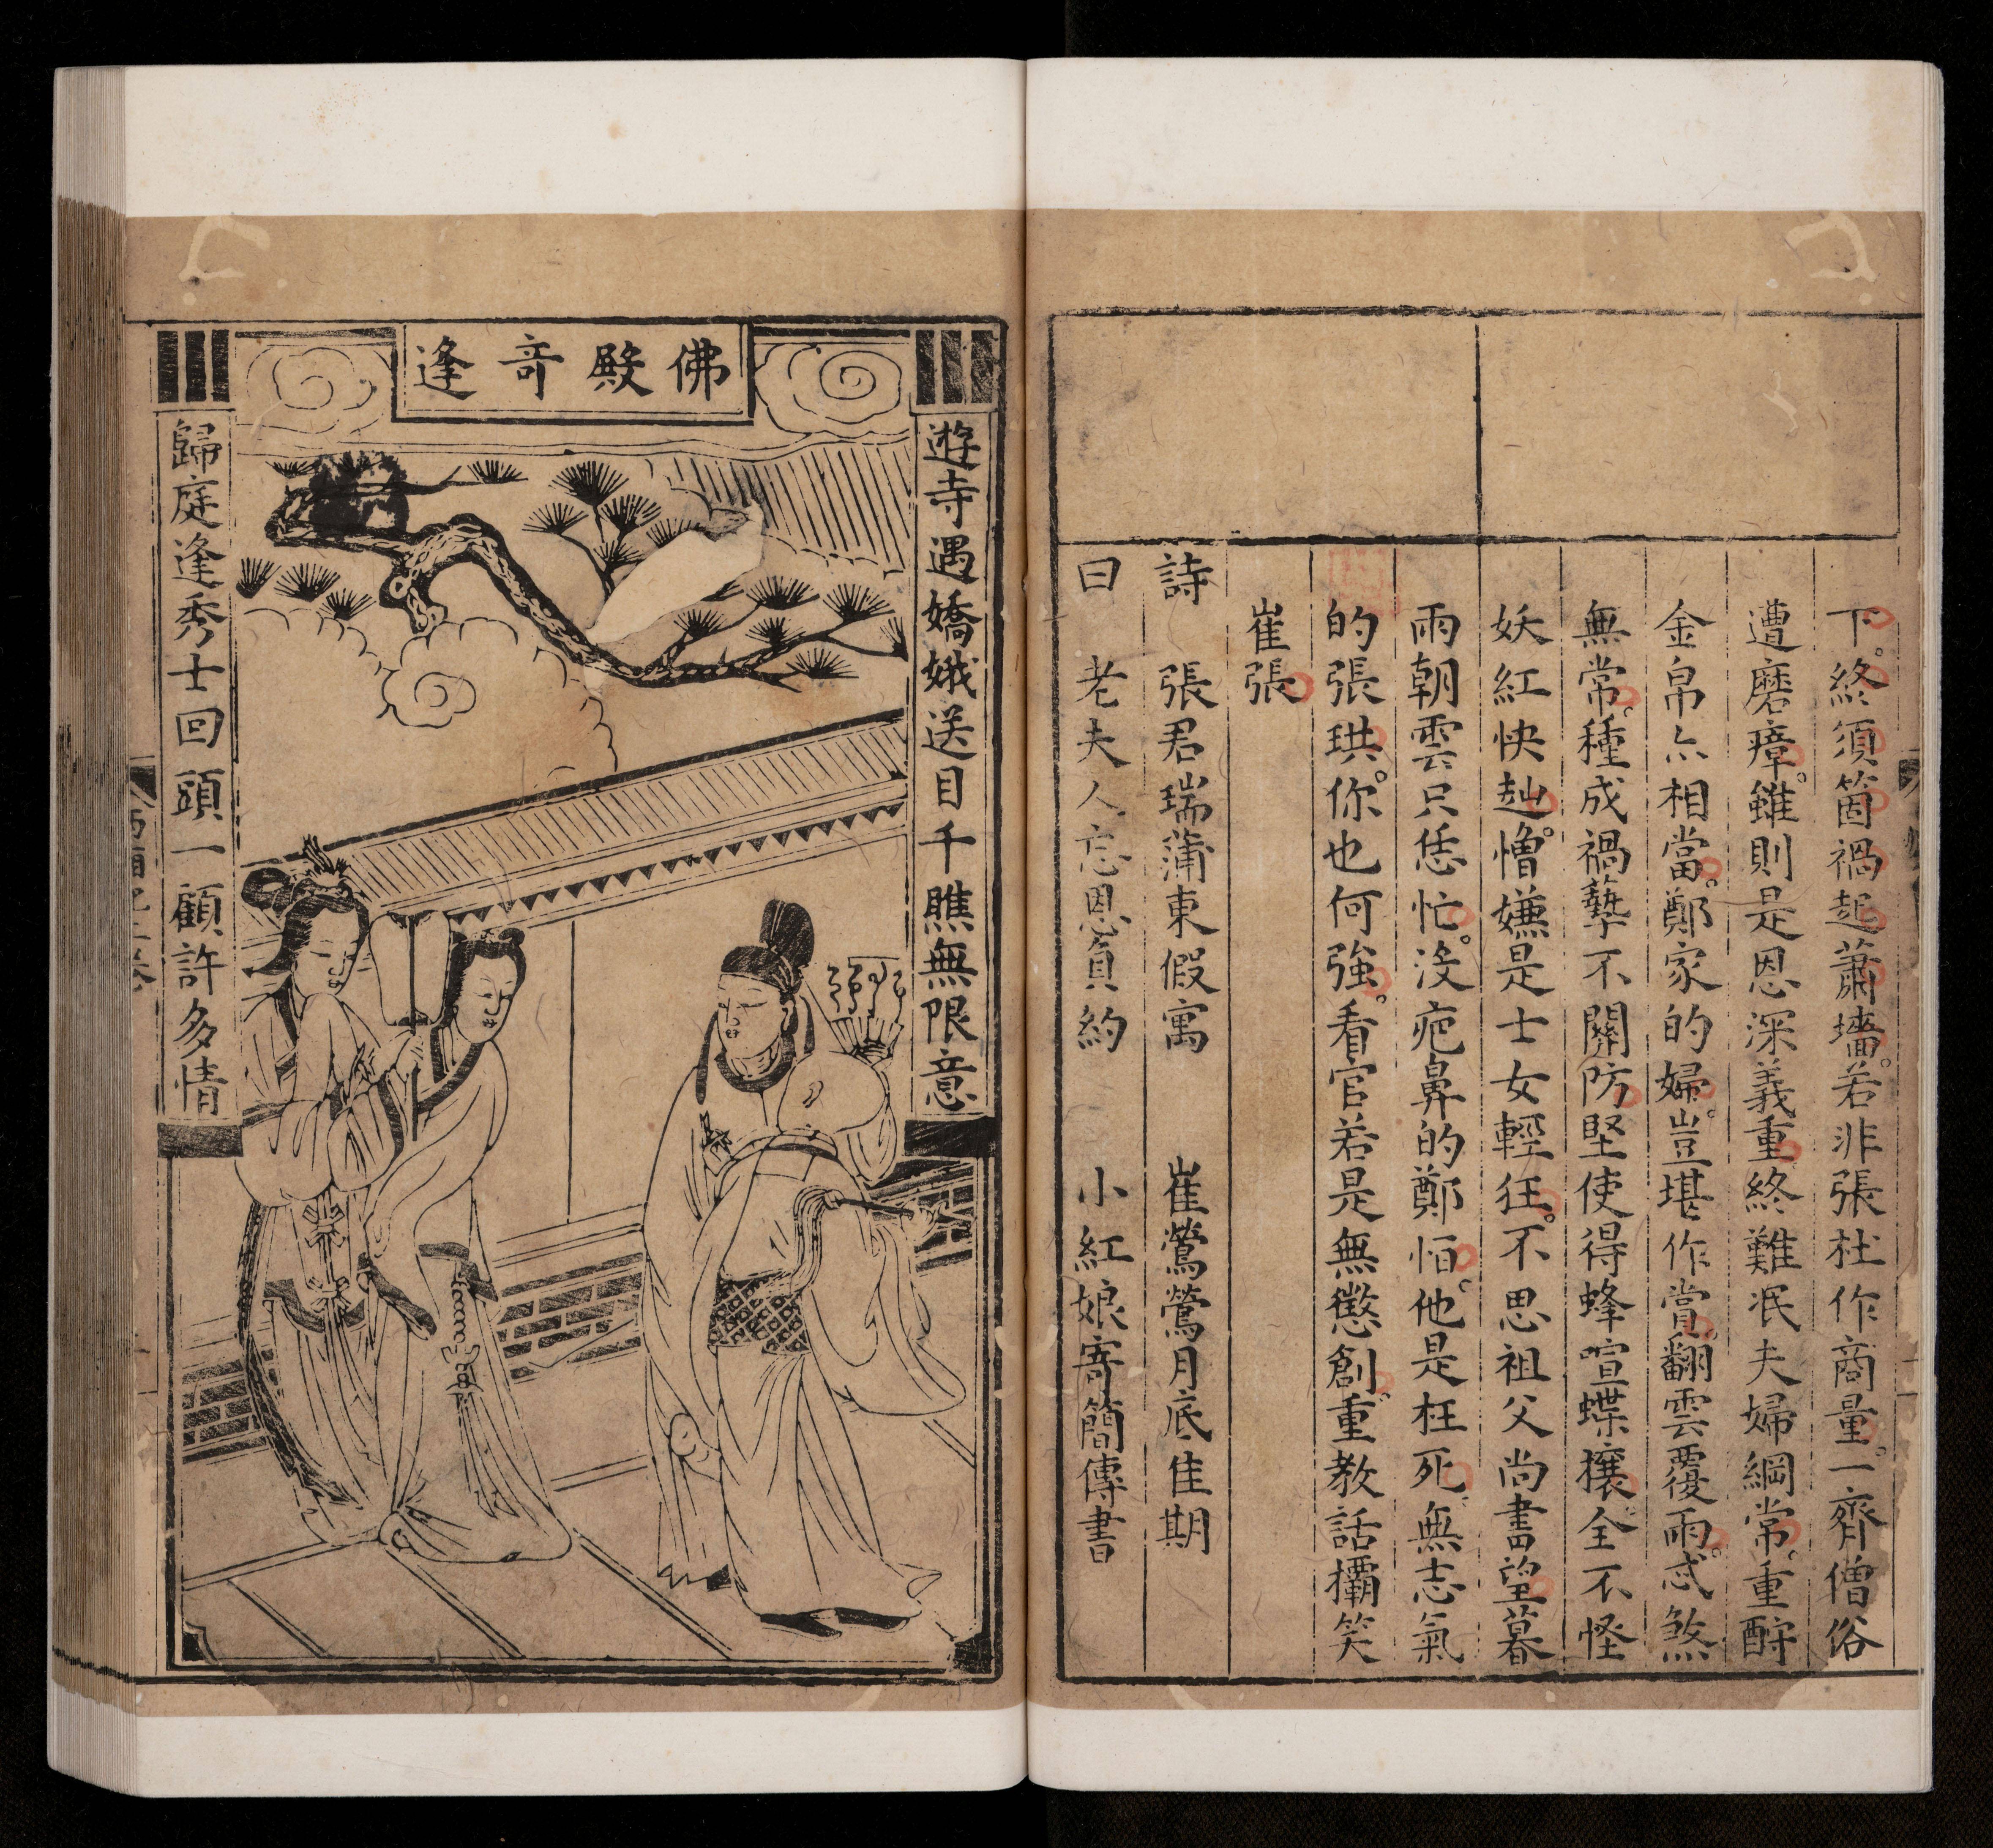 下。終須箇禍起蕭墻。若非張杜作商量。一齊僧俗
遭磨瘴。雖則是恩深義重終難泯夫婦綱常。重酧
金帛亦相當。鄭家的婦。豈堪作賞。翻雲覆雨。忒煞
無常。種成禍孽不關防堅使得蜂喧蝶攘。全不怪
妖紅快赸。憎嫌是士女輕狂。不思祖父尚書望暮
雨朝雲只恁忙。没疤鼻的鄭恒。他是枉死。無志氣
的張珙。你也何強。看官若是無懲創。重教話欛笑
崔張
詩 張君瑞蒲東假寓 崔鶯鶯月底佳期
曰 老夫人忘恩負約 小紅娘寄簡傳書
佛殿奇逢
遊寺遇嬌娥送目千瞧無限意
歸庭逢秀士回頭一顧許多情